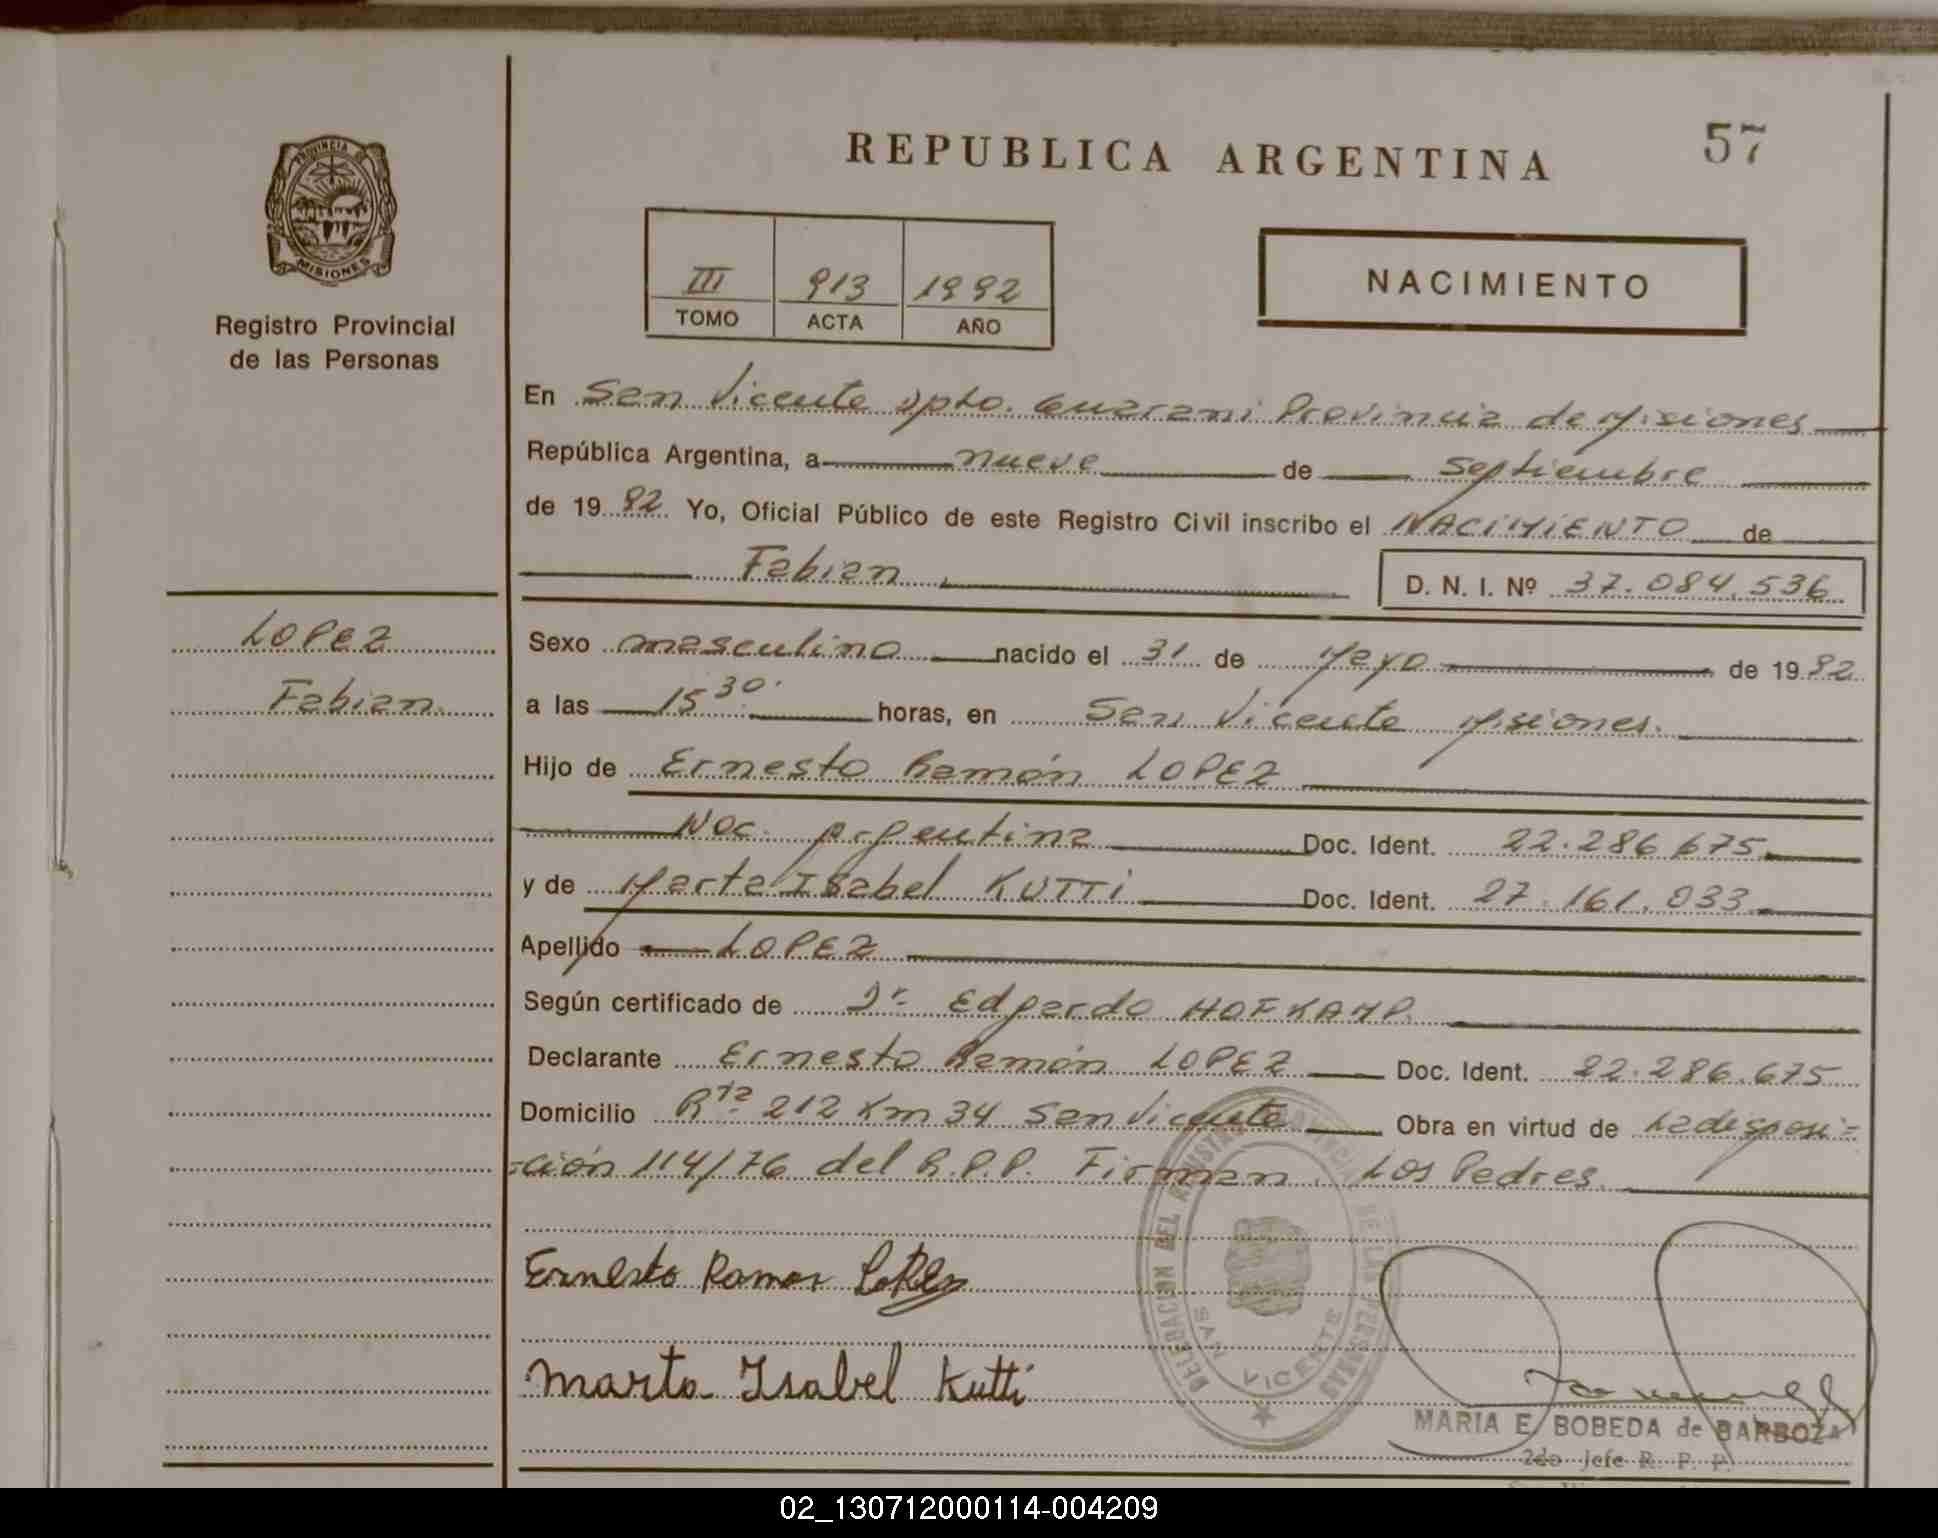 57
REPUBLICA ARGENTINA
PROVINCIA DE
MISIONES
Registro Provincial
de las Personas
III 913 1992
TOMO ACTA AÑO
NACIMIENTO
En San Vicente Dpto. Guarani Provincia de Misiones
República Argentina, a nueve de septiembre
de 19 92 Yo, Oficial Público de este Registro Civil inscribo el NACIMIENTO de
Fabian D. N. I. Nº 37.084.536
LOPEZ
Fabian
Sexo masculino nacido el 31 de Mayo de 19 92
a las 15 30 horas, en San Vicente Misiones.
Hijo de Ernesto Ramón LOPEZ
Nac. Argentina Doc. Ident. 22.286.675
y de Marta Isabel KUTTI Doc. Ident. 27.161.033
Apellido LOPEZ
Según certificado de Dr. Edgardo HOFKAMP.
Declarante Ernesto Ramón LOPEZ Doc. Ident. 22.286.675
Domicilio Rta. 212 Km 34 San Vicente Obra en virtud de La disposi=
=ción 114/76 del R.P.P. Firman. Los Padres.
Ernesto Ramon Lopez
Marta Isabel Kutti
DELEGACION DEL REGISTRO PROVINCIAL DE LAS PERSONAS
SAN VICENTE
MARIA E. BOBEDA de BARBOZA
2do Jefe R. P. P.
02_130712000114-004209